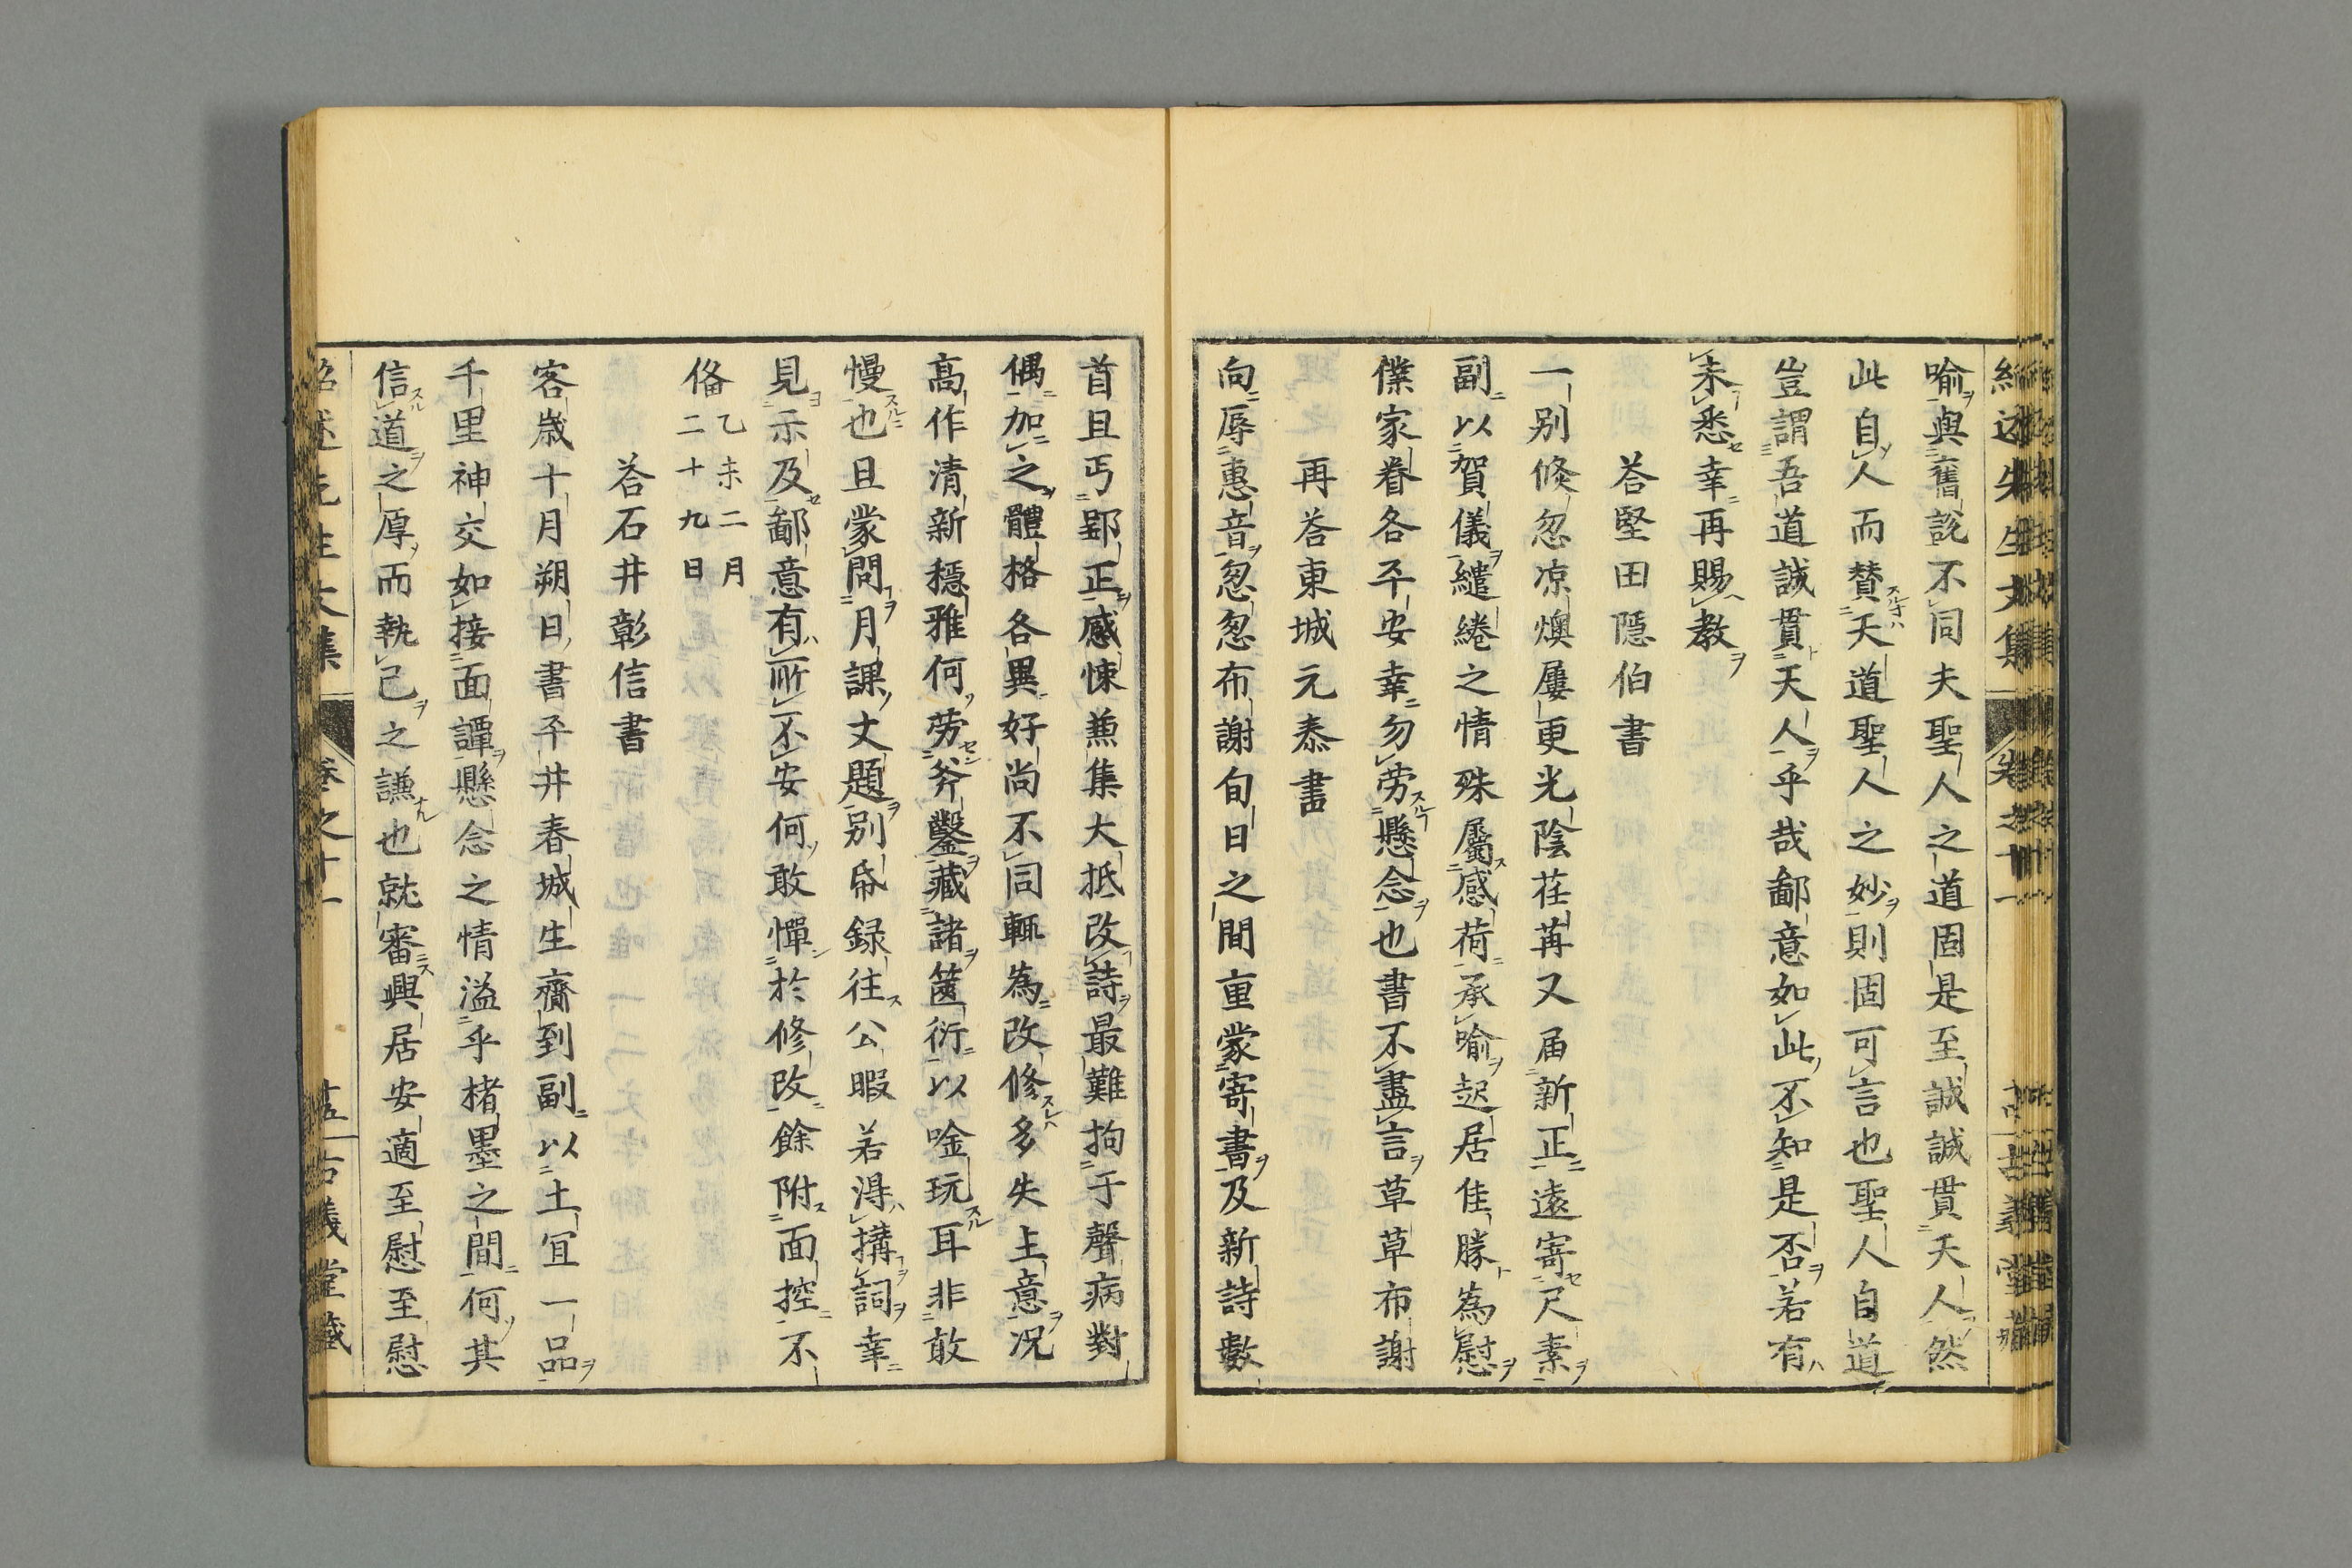 喩與舊說不同夫聖人之道固是至誠誠貫天人然
此自人而贊天道聖人之妙則固可言也聖人自道
豈謂吾道誠貫天人乎哉鄙意如此不知是否若有
未悉幸再賜教
荅堅田隱伯書
一别倏忽凉燠屢更光陰荏苒又届新正遠寄尺素
副以賀儀繾綣之情殊屬感荷承喻起居佳勝為慰
僕家眷各平安幸勿労懸念也書不盡言草草布謝
再荅東城元泰書
向辱惠音怱怱布謝旬日之間重蒙寄書及新詩數
首且丐郢正感悚兼集大抵改詩最難拘于聲病對
偶加之體格各異好尚不同輒為改修多失主意况
髙作清新穩雅何労斧鑿藏諸篋衍以唫玩耳非敢
慢也且蒙問月課文題别帋録往公暇若得搆詞幸
見示及鄙意有所不安何敢憚於修改餘附面控不
俻乙未二月
二十九日
荅石井彰信書
客歳十月朔日書平井春城生齋到副以土冝一品
千里神交如接面譚懸念之情溢乎楮墨之間何其
信道之厚而執己之謙也就審興居安適至慰至慰
紹述先生文集 卷之十一 十五 古義堂藏